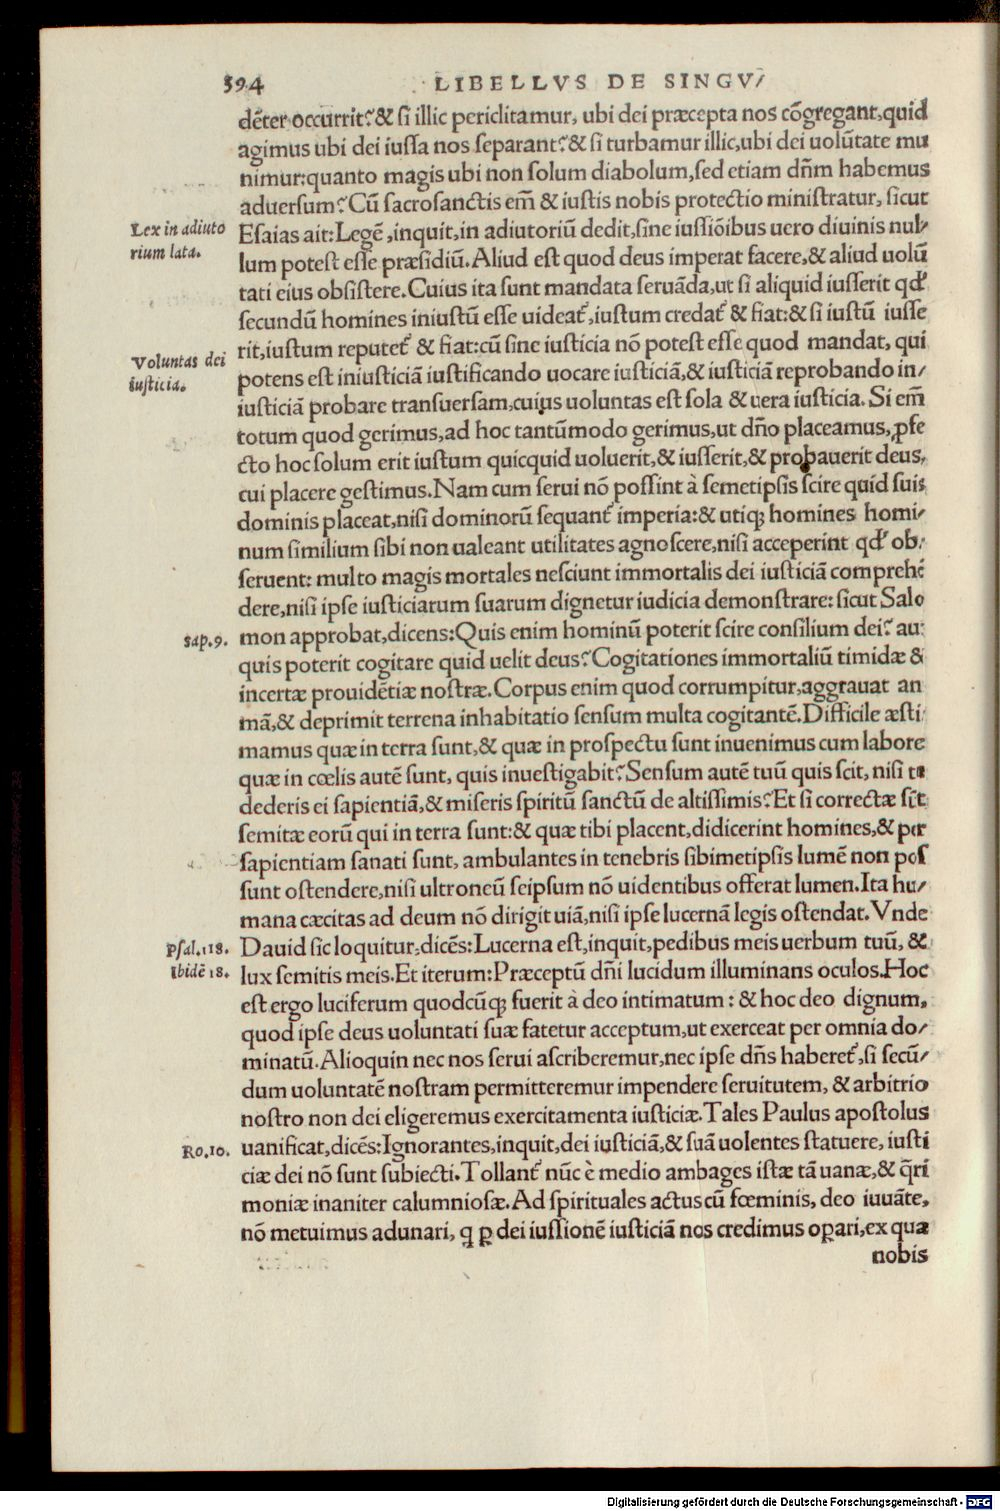 394
LIBELLVS DE SINGV/
dēter occurrit?& ſi illic periclitamur, ubi dei præcepta nos cōgregant,quid
agimus ubi dei iuſſa nos ſeparant?& ſi turbamur illic,ubi dei uolūtate mu
nimur:quanto magis ubi non ſolum diabolum,ſed etiam dñm habemus
aduerſum?Cū ſacroſanctis em̄ & iuſtis nobis protectio miniſtratur, ſicut
Lex in adiuto
rium lata.
Eſaias ait:Legē,inquit,in adiutoriū dedit,ſine iuſſiōibus uero diuinis nul/
lum poteſt eſſe præſidiū.Aliud eſt quod deus imperat facere,& aliud uolū
tati eius obſiſtere.Cuius ita ſunt mandata ſeruāda,ut ſi aliquid iuſſerit qd'
ſecundū homines iniuſtū eſſe uideat᷑,iuſtum credat᷑ & fiat:& ſi iuſtū iuſſe
Voluntas dei
iuſticia.
rit,iuſtum reputet᷑ & fiat:cū ſine iuſticia nō poteſt eſſe quod mandat, qui
potens eſt iniuſticiā iuſtificando uocare iuſticiā,& iuſticiā reprobando in/
iuſticiā probare tranſuerſam,cuius uoluntas eſt ſola & uera iuſticia. Si em̄
totum quod gerimus,ad hoc tantūmodo gerimus,ut dño placeamus,ꝓfe
cto hoc ſolum erit iuſtum quicquid uoluerit,& iuſſerit,& probauerit deus,
cui placere geſtimus.Nam cum ſerui nō poſſint à ſemetipſis ſcire quid ſuis
dominis placeat,niſi dominorū ſequant᷑ imperia:& utiqꝫ homines homi/
num ſimilium ſibi non ualeant utilitates agnoſcere,niſi acceperint qd' ob/
ſeruent: multo magis mortales neſciunt immortalis dei iuſticiā comprehē
dere,niſi ipſe iuſticiarum ſuarum dignetur iudicia demonſtrare: ſicut Salo
Sap.9.
mon approbat,dicens:Quis enim hominū poterit ſcire conſilium dei? aut
quis poterit cogitare quid uelit deus?Cogitationes immortaliū timidæ &
incertæ prouidētiæ noſtræ.Corpus enim quod corrumpitur,aggrauat ani
mā,& deprimit terrena inhabitatio ſenſum multa cogitantē.Difficile æſti
mamus quæ in terra ſunt,& quæ in proſpectu ſunt inuenimus cum labore
quæ in cœlis autē ſunt, quis inueſtigabit?Senſum autē tuū quis ſcit, niſi tu
dederis ei ſapientiā,& miſeris ſpiritū ſanctū de altiſſimis?Et ſi correctæ ſīt
ſemitæ eorū qui in terra ſunt:& quæ tibi placent,didicerint homines,& per
ſapientiam ſanati ſunt, ambulantes in tenebris ſibimetipſis lumē non poſ
ſunt oſtendere,niſi ultroneū ſeipſum nō uidentibus offerat lumen.Ita hu/
mana cæcitas ad deum nō dirigit uiā,niſi ipſe lucernā legis oſtendat.Vnde
Pſal.118.
Ibidē 18.
Dauid ſic loquitur,dicēs:Lucerna eſt,inquit,pedibus meis uerbum tuū, &
lux ſemitis meis.Et iterum:Præceptū dñi lucidum illuminans oculos.Hoc
eſt ergo luciferum quodcūqꝫ fuerit à deo intimatum: & hoc deo dignum,
quod ipſe deus uoluntati ſuæ fatetur acceptum,ut exerceat per omnia do/
minatū.Alioquin nec nos ſerui aſcriberemur,nec ipſe dñs haberet᷑,ſi ſecū/
dum uoluntatē noſtram permitteremur impendere ſeruitutem, & arbitrio
noſtro non dei eligeremus exercitamenta iuſticiæ.Tales Paulus apoſtolus
Ro.10.
uanificat,dicēs:Ignorantes,inquit,dei iuſticiā,& ſuā uolentes ſtatuere, iuſti
ciæ dei nō ſunt ſubiecti.Tollant᷑ nūc è medio ambages iſtæ tā uanæ,& q̄ri
moniæ inaniter calumnioſæ.Ad ſpirituales actus cū fœminis, deo iuuāte,
nō metuimus adunari, q ꝑ dei iuſſionē iuſticiā nos credimus oꝑari,ex qua
nobis
Digitalisierung gefördert durch die Deutsche Forschungsgemeinschaft - DFG